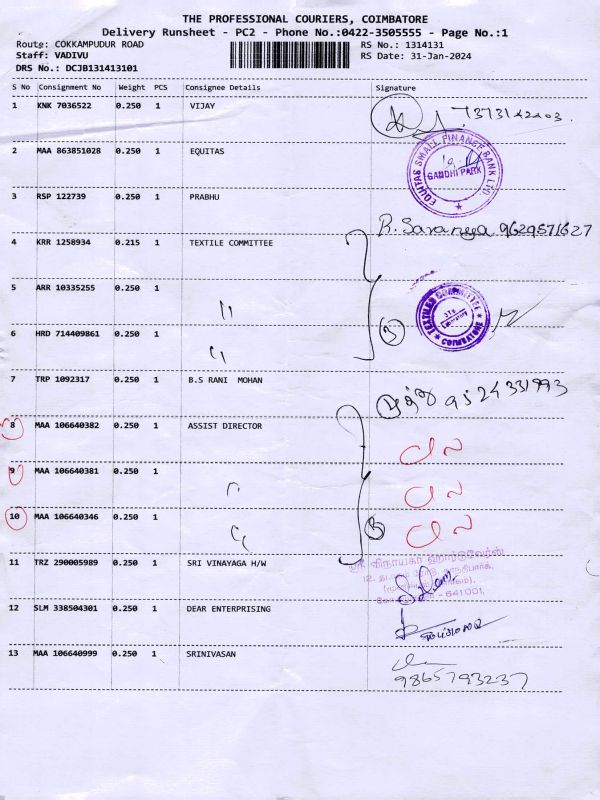 THE PROFESSIONAL COURIERS, COIMBATORE
Delivery Runsheet - PC2 - Phone No.:0422-3505555 - Page No.:1
Route: COKKAMPUDUR ROAD RS No.: 1314131
Staff: VADIVU RS Date: 31-Jan-2024
DRS No.: DCJB131413101
S No Consignment No Weight PCS Consignee Details Signature
1 KNK 7036522 0.250 1 VIJAY
2 MAA 863851028 0.250 1 EQUITAS
EQUITAS SMALL FINANCE BANK LTD
GANDHI PARK
3 RSP 122739 0.250 1 PRABHU
R. Saranya 9629571627
4 KRR 1258934 0.215 1 TEXTILE COMMITTEE
5 ARR 10335255 0.250 1 "
TEXTILES COMMITTEE
COIMBATORE
6 HRD 714409861 0.250 1 " 3
7 TRP 1092317 0.250 1 B.S RANI MOHAN
9524331993
8 MAA 106640382 0.250 1 ASSIST DIRECTOR
9 MAA 106640381 0.250 1 "
10 MAA 106640346 0.250 1 " 3
11 TRZ 290005989 0.250 1 SRI VINAYAGA H/W
ஸ்ரீ விநாயகர் ஹார்டுவேர்ஸ்
641001.
12 SLM 338504301 0.250 1 DEAR ENTERPRISING
13 MAA 106640999 0.250 1 SRINIVASAN
9865793237